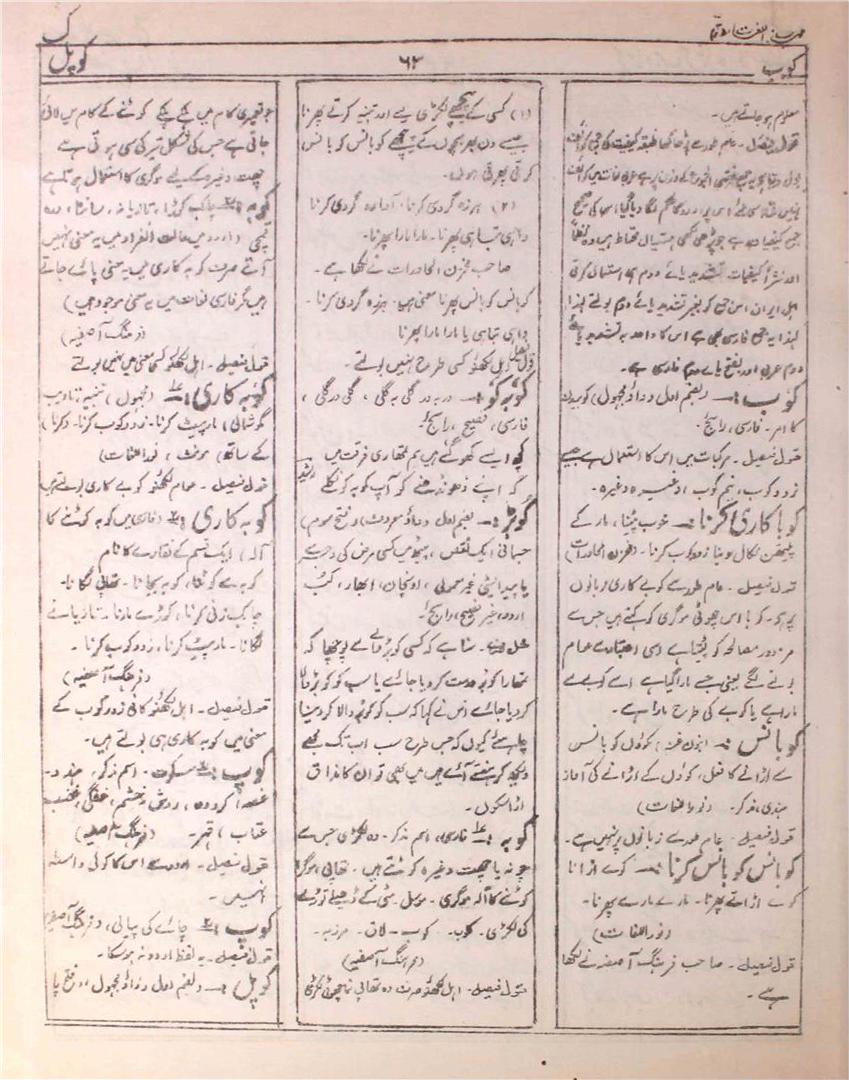 ک
کوب
۶۲
کوپل
معلوم ہو جاتے ہیں۔
دوم عربی اور بفتح یاے دوم فارسی ہے۔
کوب :۔ (بفتح اول و واؤ مجہول) کوبیدن
کا امر۔ فارسی، رائج۔
قول فیصل۔ مرکبات میں اس کا استعمال ہے جیسے
زد و کوب، نیم کوب، وغیرہ وغیرہ۔
کوبا کاری کرنا :۔ خوب پیٹنا، مار کے
پلیتھن نکال دینا زد و کوب کرنا۔ (مخزن المحاورات)
قول فیصل۔ عام طور سے کوبے کاری زبانوں
پر ہے۔ کوبا اس چھوٹی موگری کو کہتے ہیں جس سے
مزدور مصالحہ کو پیٹتا ہے اسی اعتبار سے عام
بولنے لگے یعنی جسے مارا گیا ہے اسے کوبے سے
مارا ہے یا کوبے کی طرح مارا ہے۔
کو بانس :۔ کوؤں کو بانس
سے اڑانے کا فعل، کوؤں کے اڑانے کی آواز
ہندی، مذکر۔ (نور اللغات)
قول فیصل۔ عام طور سے زبانوں پر نہیں ہے۔
کو بانس کو بانس کرنا :۔ کوے اڑانا
کوے اڑاتے پھرنا۔ مارے مارے پھرنا۔
(نور اللغات)
قول فیصل۔ صاحب فرہنگ آصفیہ نے لکھا
ہے۔
(۱) کسی کے پیچھے لکڑی لیے اور تنبیہ کرتے پھرنا
جیسے دن بھر بچوں کے پیچھے کو بانس کو بانس
کرتی پھرتی ہوں۔
(۲) ہرزہ گردی کرنا، آوارہ گردی کرنا
واہی تباہی پھرنا۔ مارا مارا پھرنا۔
صاحب مخزن المحاورات نے لکھا ہے۔
کو بانس کو بانس پھرنا معنی ہیں۔ ہرزہ گردی کرنا۔
واہی تباہی یا مارا مارا پھرنا
قول فیصل اہل لکھنؤ کسی طرح نہیں بولتے۔
کو بکو :۔ در بدر گلی بہ گلی، گلی در گلی،
فارسی، فصیح، رائج۔
کچھ ایسے کھو گئے ہیں ہم تمھاری فرقت میں
کہ اپنے ڈھونڈھنے کو آپ کو بکو نکلے
کوبڑ :۔ (بضم اول و واؤ معروف و فتح سوم)
جسمانی ایک نقص، پیٹھ میں کسی مرض کی وجہ سے
یا پیدائشی غیر معمولی، اونچان، ابھار، کُب
اردو، غیر فصیح، رائج۔
سنا ہے کہ کسی کوبڑ والے سے پوچھا کہ
تمھارا کوبڑ درست کر دیا جائے یا سب کو کوبڑ والا
کر دیا جائے اس نے کہا کہ سب کو کوبڑ والا کر دینا
چاہیے کیوں کہ جس طرح سب اب تک مجھے
دیکھ کر ہنستے آئے ہیں میں بھی تو ان کا مذاق
اڑا سکوں۔
کوبہ :۔ فارسی، اسم مذکر۔ وہ لکڑی جس سے
چونہ یا چھت وغیرہ کوٹتے ہیں۔ تھاپی، موگری
کوٹنے کا آلہ، موگری۔ موسل۔ مٹی کے ڈھیلے توڑنے
کی لکڑی۔
(فرہنگ آصفیہ)
قول فیصل۔ اہل لکھنؤ صرف وہ تھاپی نما چھوٹی لکڑی
جو تعمیری کام میں کچے پکے کوٹنے کے کام میں لائی
جاتی ہے جس کی شکل تیر کی سی ہوتی ہے
چھت وغیرہ کے لیے موگری کا استعمال ہوتا ہے
کوبہ :۔ چابک، کوڑا، تازیانہ، سانٹا، درہ
قمچی (اردو میں حالت انفراد میں یہ معنی نہیں
آتے صرف کوبہ کاری میں یہ معنی پائے جاتے
ہیں مگر فارسی لغات میں یہ معنی موجود ہیں)
(فرہنگ آصفیہ)
قول فیصل۔ اہل لکھنؤ کسی معنی میں نہیں بولتے
کوبہ کاری :۔ (مجہول) تنبیہ تادیب
گوشمالی، مار پیٹ کرنا۔ زد و کوب کرنا۔ (کرنا)
کے ساتھ) مونث، نور اللغات)
قول فیصل۔ عام لکھنؤ کوبے کاری بولتے ہیں
کوبہ کاری :۔ (فارسی میں کوبہ کوٹنے کا
آلہ) ایک قسم کے نقارے کا نام
کوبے کوٹنا، کوبہ بجانا۔ تھاپی لگانا۔
چابک زنی کرنا، کوڑے مارنا۔ تازیانے
لگانا۔ مار پیٹ کرنا، زد و کوب کرنا۔
(فرہنگ آصفیہ)
قول فیصل۔ اہل لکھنؤ کافی زد و کوب کے
معنی میں کوبہ کاری ہی بولتے ہیں۔
کوپ :۔ سنسکرت۔ اسم مذکر، ہندو۔
غصہ، کرودھ، روش، خشم، خفگی، غضب
عتاب، قہر۔ (فرہنگ آصفیہ)
قول فیصل۔ اردو سے اس کا کوئی واسطہ
نہیں۔
کوپ :۔ چائے کی پیالی، (فرہنگ آصفیہ)
قول فیصل۔ یہ لفظ اردو نہ ہو سکا۔
کوپل :۔ (بضم اول و واؤ مجہول، و فتح پا